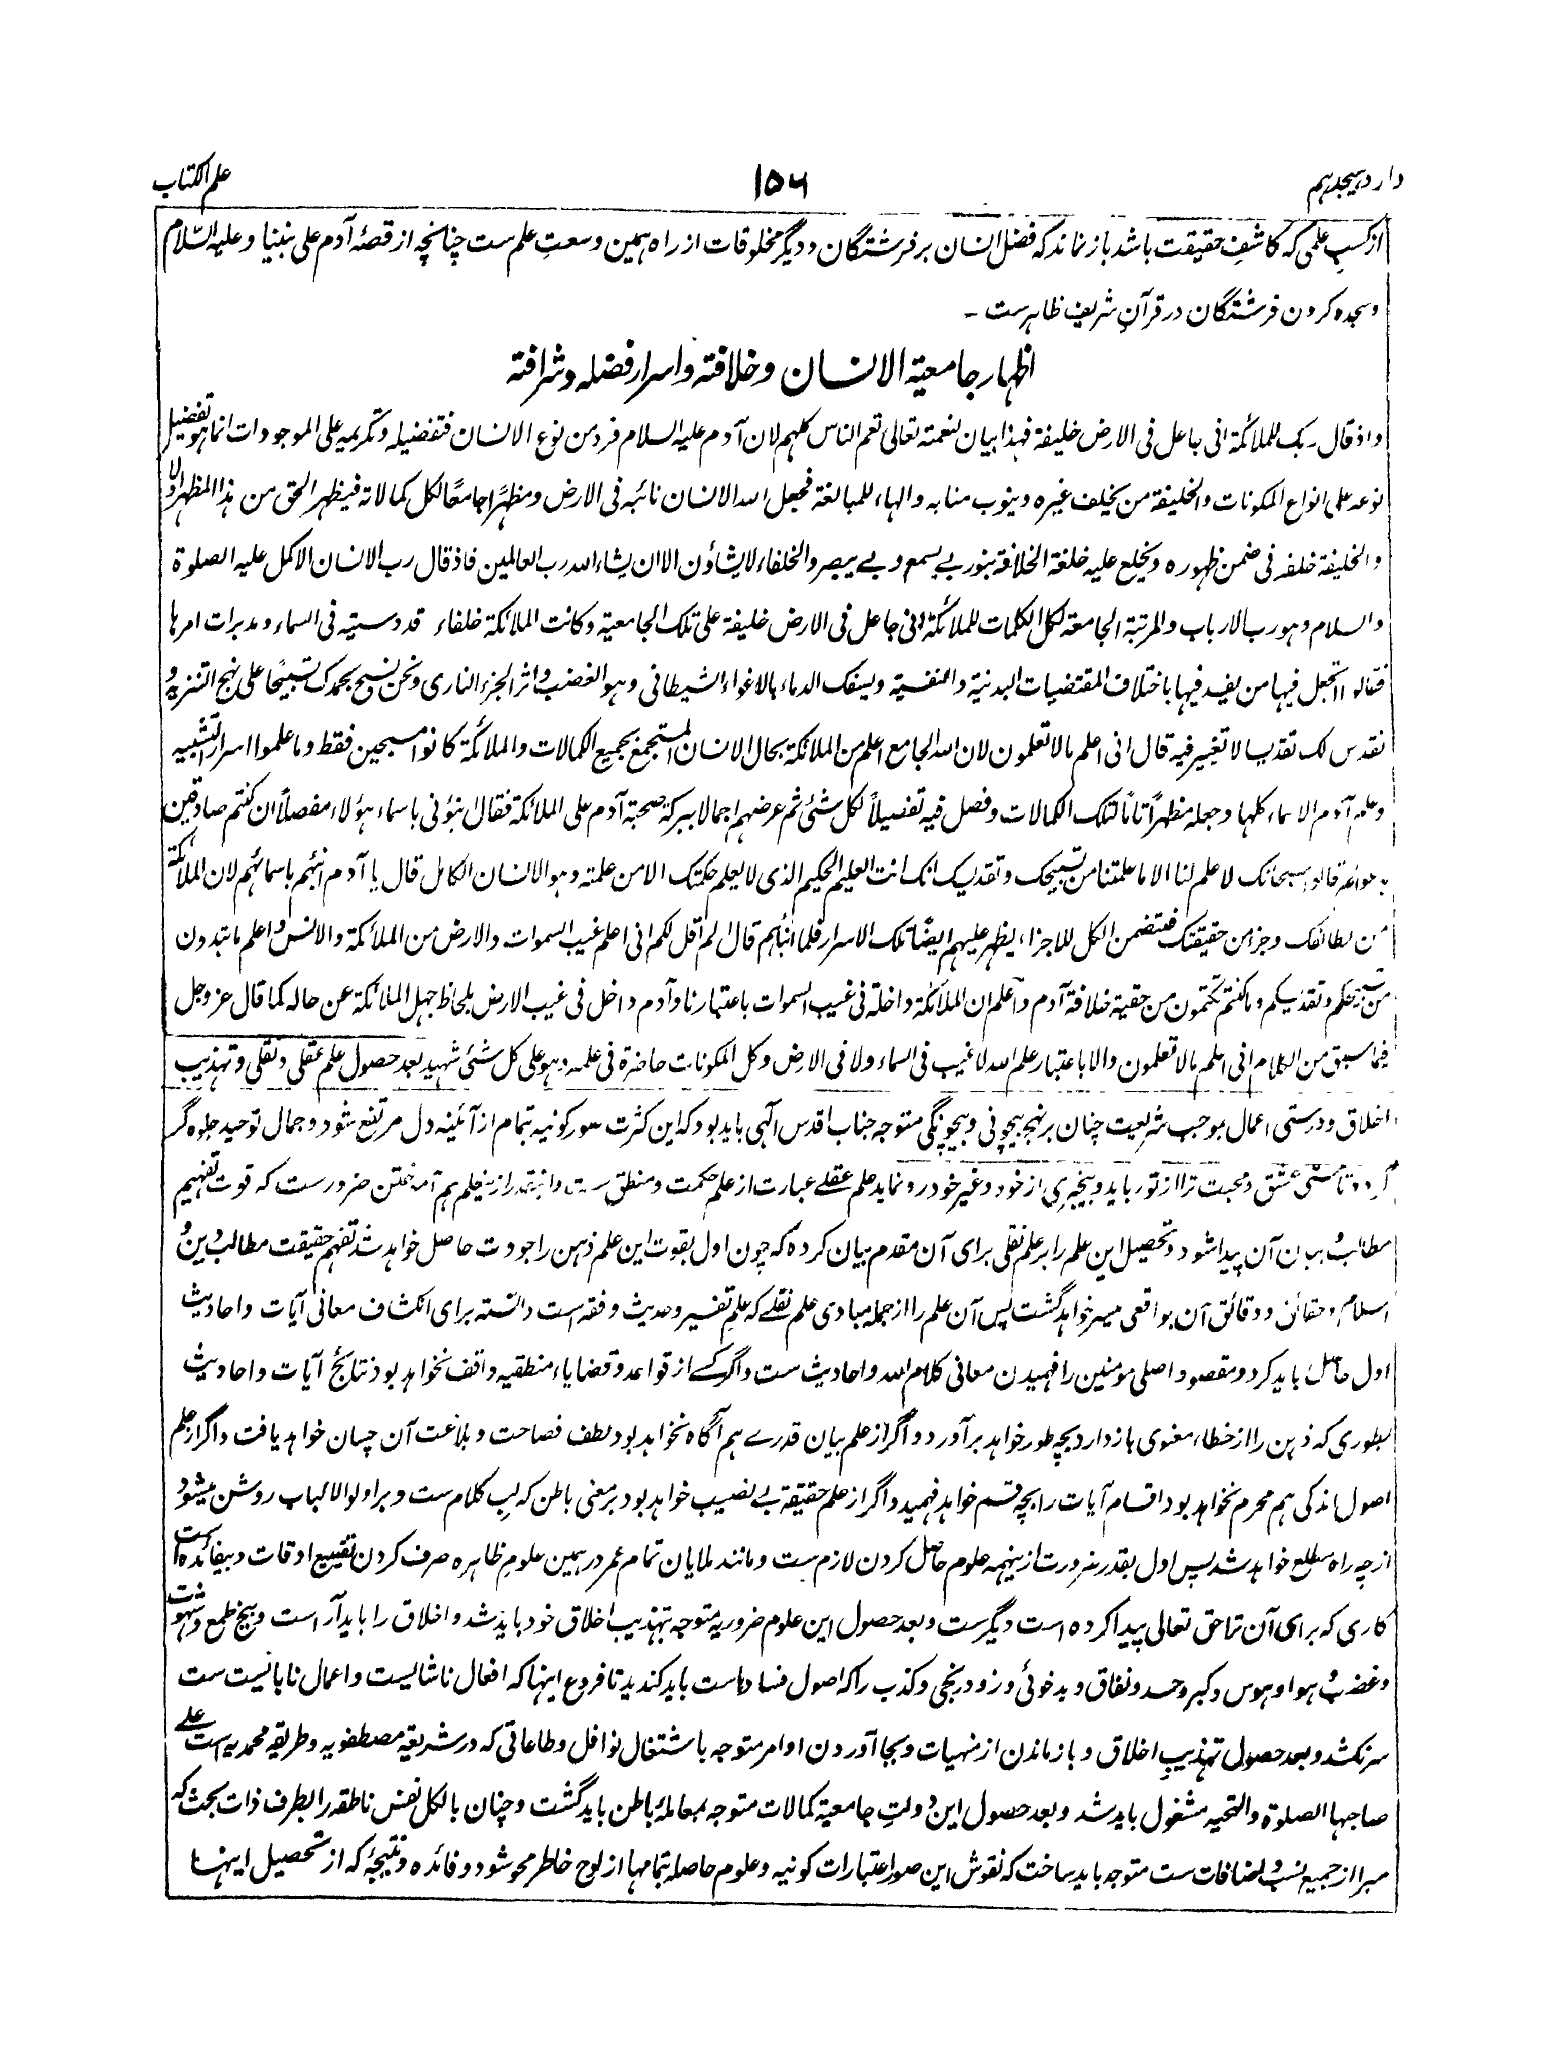 وارد ہیجدہم
۱۵۶
علم الکتاب
از کسب علمی کہ کاشفِ حقیقت باشد باز نماند کہ فضل انسان بر فرشتگان و دیگر مخلوقات از راہ ہمین وسعتِ علم ست چنانچہ از قصۂ آدم علی نبینا و علیہ السلام
و سجدہ کردن فرشتگان در قرآنِ شریف ظاہرست ۔
اظہار جامعیة الانسان و خلافتہ و اسرار فضلہ و شرافتہ
و اذ قال ربک للملائکة انی جاعل فی الارض خلیفة فہذا بیان لنعمتہ تعالی تعم الناس کلہم لان آدم علیہ السلام فرد من نوع الانسان فتفضیلہ و تکریمہ علی الموجودات انما ہو تفضیل
نوعہ علی انواع المکونات و الخلیفة من یخلف غیرہ و ینوب منابہ و الہاء للمبالغة فجعل اللہ الانسان نائبہ فی الارض و مظہرًا جامعًا لکل کمالاتہ فیظہر الحق من ہذا المظہر اولا
و الخلیفة خلفہ فی ضمن ظہورہ و یخلع علیہ خلعة الخلافة بنور بی یسمع و بی یبصر و الخلفاء لا یشاؤن الا ان یشاء اللہ رب العالمین فاذ قال رب الانسان الاکمل علیہ الصلوة
و السلام و ہو رب الارباب و المرتبة الجامعة لکل الکلمات للملائکة انی جاعل فی الارض خلیفة علی تلک الجامعیة و کانت الملائکة خلفاء قدوستیہ فی السماء و مدبرات امرہا
فقالوا اتجعل فیہا من یفسد فیہا باختلاف المقتضیات البدنیة و النفسیة و یسفک الدماء بالاغواء الشیطانی و ہو الغضب و اثر الجزء الناری و نحن نسبح بحمدک تسبیحًا علی نہج التنزیہ و
نقدس لک تقدیسا لا تغییر فیہ قال انی اعلم ما لا تعلمون لان اللہ الجامع اعلم من الملائکة بحال الانسان المستجمع بجمیع الکمالات و الملائکة کانوا مسبحین فقط و ما علموا اسرار التشبیہ
و علم آدم الاسماء کلہا و جعلہ مظہرًا تامًا لتلک الکمالات و فصل فیہ تفصیلاً لکل شئ ثم عرضہم اجمالا ببرکة صحبة آدم علی الملائکة فقال انبؤنی باسماء ہؤلاء مفصلاً ان کنتم صادقین
قالوا سبحانک لا علم لنا الا ما علمتنا من تسبیحک و تقدیسک انک انت العلیم الحکیم الذی لا یعلم حکمتک الا من علمتہ و ہو الانسان الکامل قال یا آدم انبئہم باسمائہم لان الملائکة
من لطائفک و جزء من حقیقتک فتضمن الکل للاجزاء یظہر علیہم ایضًا تلک الاسرار فلما انبأہم قال الم اقل لکم انی اعلم غیب السموات و الارض من الملائکة و الانس و اعلم ما تبدون
من تسبیحکم و تقدیسکم و ما کنتم تکتمون من حقیة خلافة آدم و اعلم ان الملائکة داخلة فی غیب السموات باعتبارنا و آدم داخل فی غیب الارض بلحاظ جہل الملائکة عن حالہ کما قال عز و جل
فیما سبق من الکلام انی اعلم ما لا تعلمون و الا باعتبار علم اللہ لا غیب فی السماء و لا فی الارض و کل المکونات حاضرة فی علمہ و ہو علی کل شئ شہید بعد حصول علم عقلی و نقلی و تہذیب
اخلاق و درستی اعمال بموجب شریعت چنان بر نہج بیچونی و بیچگونگی متوجہ جناب اقدس آلہی باید بود کہ این کثرت صور کونیہ بتمام از آئینۂ دل مرتفع شود و جمال توحید جلوہ گر
عشق و محبت ترا از تو رباید و بیخبری از خود و غیر خود رو نماید علم عقلے عبارت از علم حکمت و منطق ست و اینقدر از ینعلم ہم آموختن ضرورست کہ قوت تفہیم
مطالب و بیان آن پیدا شود و تحصیل این علم را بر علم نقلی برای آن مقدم بیان کردہ کہ چون اول بقوت این علم ذہن را جودت حاصل خواہد شد تفہم حقیقت مطالب دین و
اسلام و حقائق و دقائق آن بواقعی میسر خواہد گشت پس آن علم را از جملہ مبادی علم نقلے کہ علم تفسیر و حدیث و فقہ است دانستہ برای انکشاف معانی آیات و احادیث
اول حاصل باید کرد و مقصود اصلی مومنین را فہمیدن معانی کلام اللہ و احادیث ست و اگر کسے از قواعد و قضایاء منطقیہ واقف نخواہد بود نتائج آیات و احادیث
بطوری کہ ذہن را از خطاء معنوی باز دارد بچہ طور خواہد برآورد و اگر از علم بیان قدرے ہم آگاہ نخواہد بود لطف فصاحت و بلاغت آن چسان خواہد یافت و اگر از علم
اصول اندکی ہم محرم نخواہد بود اقسام آیات را بچہ قسم خواہد فہمید و اگر از علم حقیقة بے نصیب خواہد بود بر معنی باطن کہ لب کلام ست و بر اولوالالباب روشن میشود
از چہ راہ مطلع خواہد شد پس اول بقدر ضرورت ازینہمہ علوم حاصل کردن لازم ست و مانند ملایان تمام عمر در ہمین علومِ ظاہرہ صرف کردن تضییع اوقات و بیفائدہ است
کاری کہ برای آن ترا حق تعالی پیدا کردہ است دیگرست و بعد حصول این علوم ضروریہ متوجہ تہذیب اخلاق خود باید شد و اخلاق را باید آراست و بیخ طمع و شہوت
و غضب و ہوا و ہوس و کبر و حسد و نفاق و بدخوئی و زود رنجی و کذب را کہ اصول فسادہاست باید کندید تا فروع اینہا کہ افعال ناشایست و اعمال نابایست ست
سر نکشد و بعد حصول تہذیبِ اخلاق و باز ماندن از منہیات و بجا آوردن اوامر متوجہ باشتغال نوافل و طاعاتی کہ در شریعة مصطفویہ و طریقہ محمدیہ است علے
صاحبہا الصلوة و التحیہ مشغول باید شد و بعد حصول این دولتِ جامعیة کمالات متوجہ بمعاملۂ باطن باید گشت و چنان بالکل نفس ناطقہ را بطرف ذات بحت کہ
مبرا از جمیع نسب و اضافات ست متوجہ باید ساخت کہ نقوش این صور اعتبارات کونیہ و علوم حاصلہ بتمامہا از لوح خاطر محو شود و فائدہ و نتیجۂ کہ از تحصیل اینہا